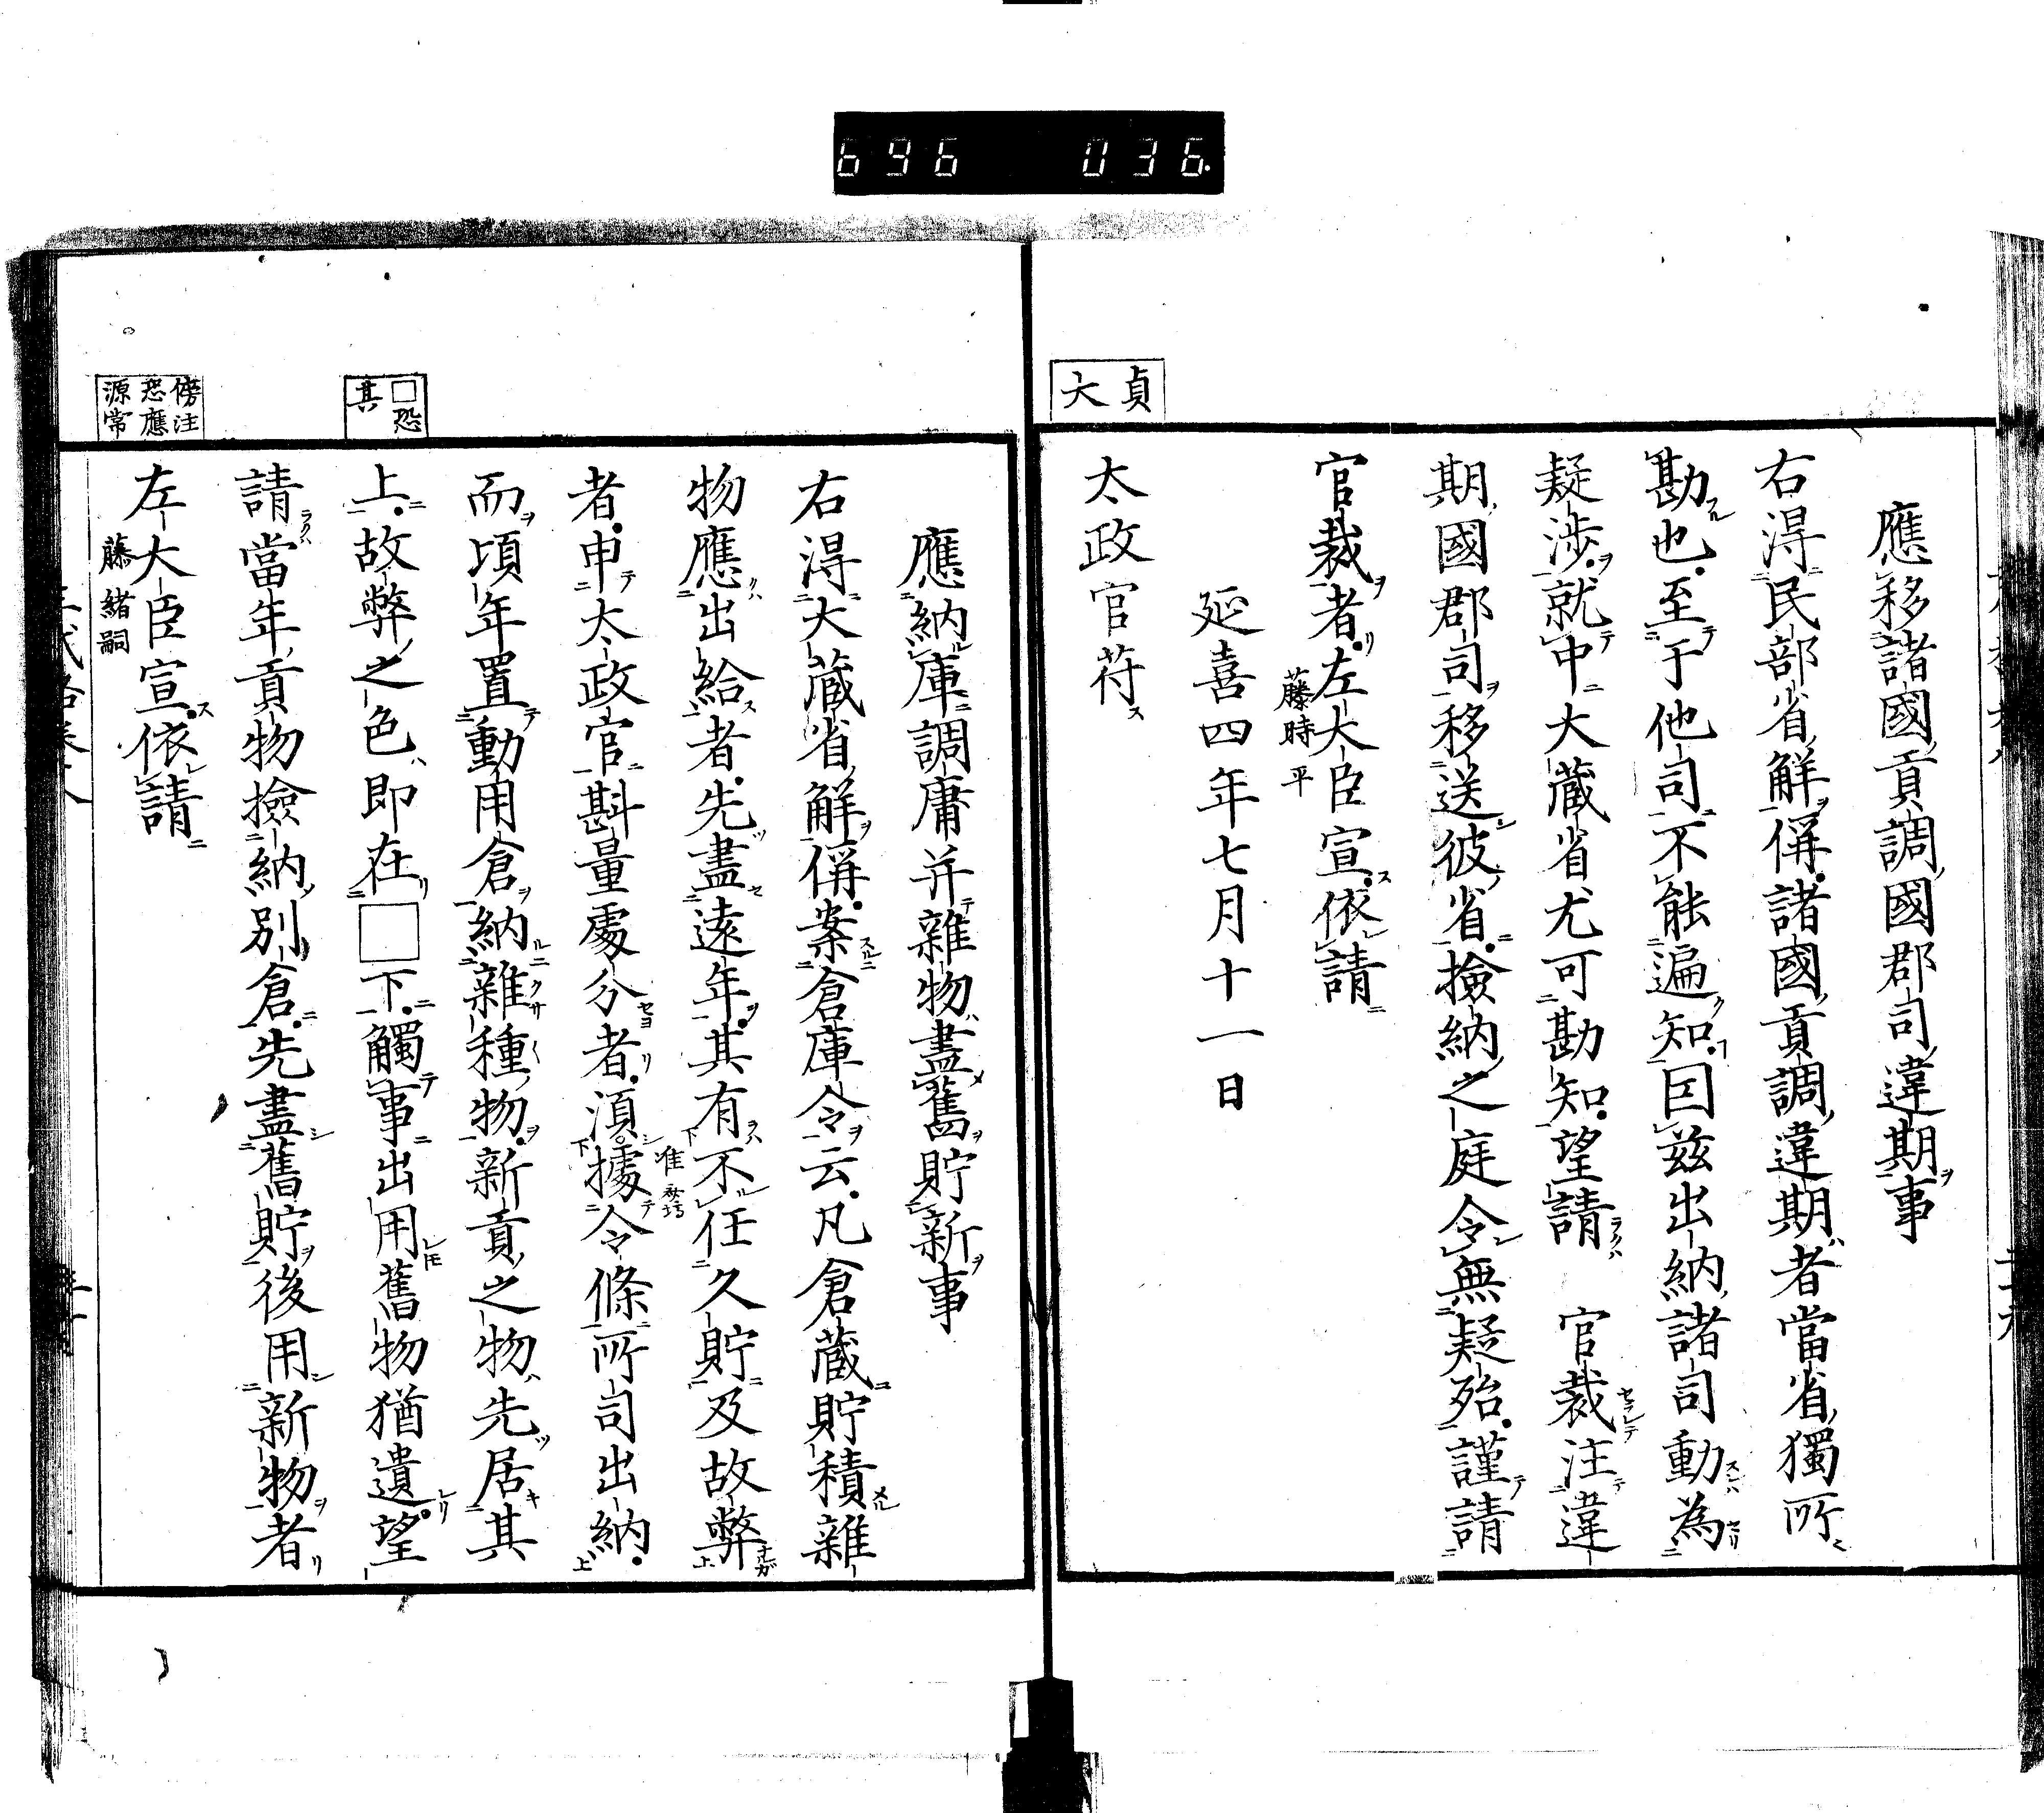 696 036.
貞
大
應移諸國貢調國郡司違期事
右得民部省解偁諸國貢調違期者當省獨所
勘也至于他司不能遍知因茲出納諸司動為
疑渉就中大藏省尤可勘知望請 官裁注違
期國郡司移送彼省撿納之庭令無疑殆謹請
官裁者左大臣宣依請
藤時平
延喜四年七月十一日
太政官符
應納庫調庸并雜物盡舊貯新事
右得大藏省解偁案倉庫令云凡倉藏貯積雜
物應出給者先盡遠年其有不任久貯及故弊
者申太政官斟量處分者須據令條所司出納
准
而頃年置動用倉納雜種物新貢之物先居其
□恐
其
上故弊之色即在□下觸事出用舊物猶遺望
請當年貢物撿納別倉先盡舊貯後用新物者
傍注
恐應
源常
左大臣宣依請
藤緒嗣